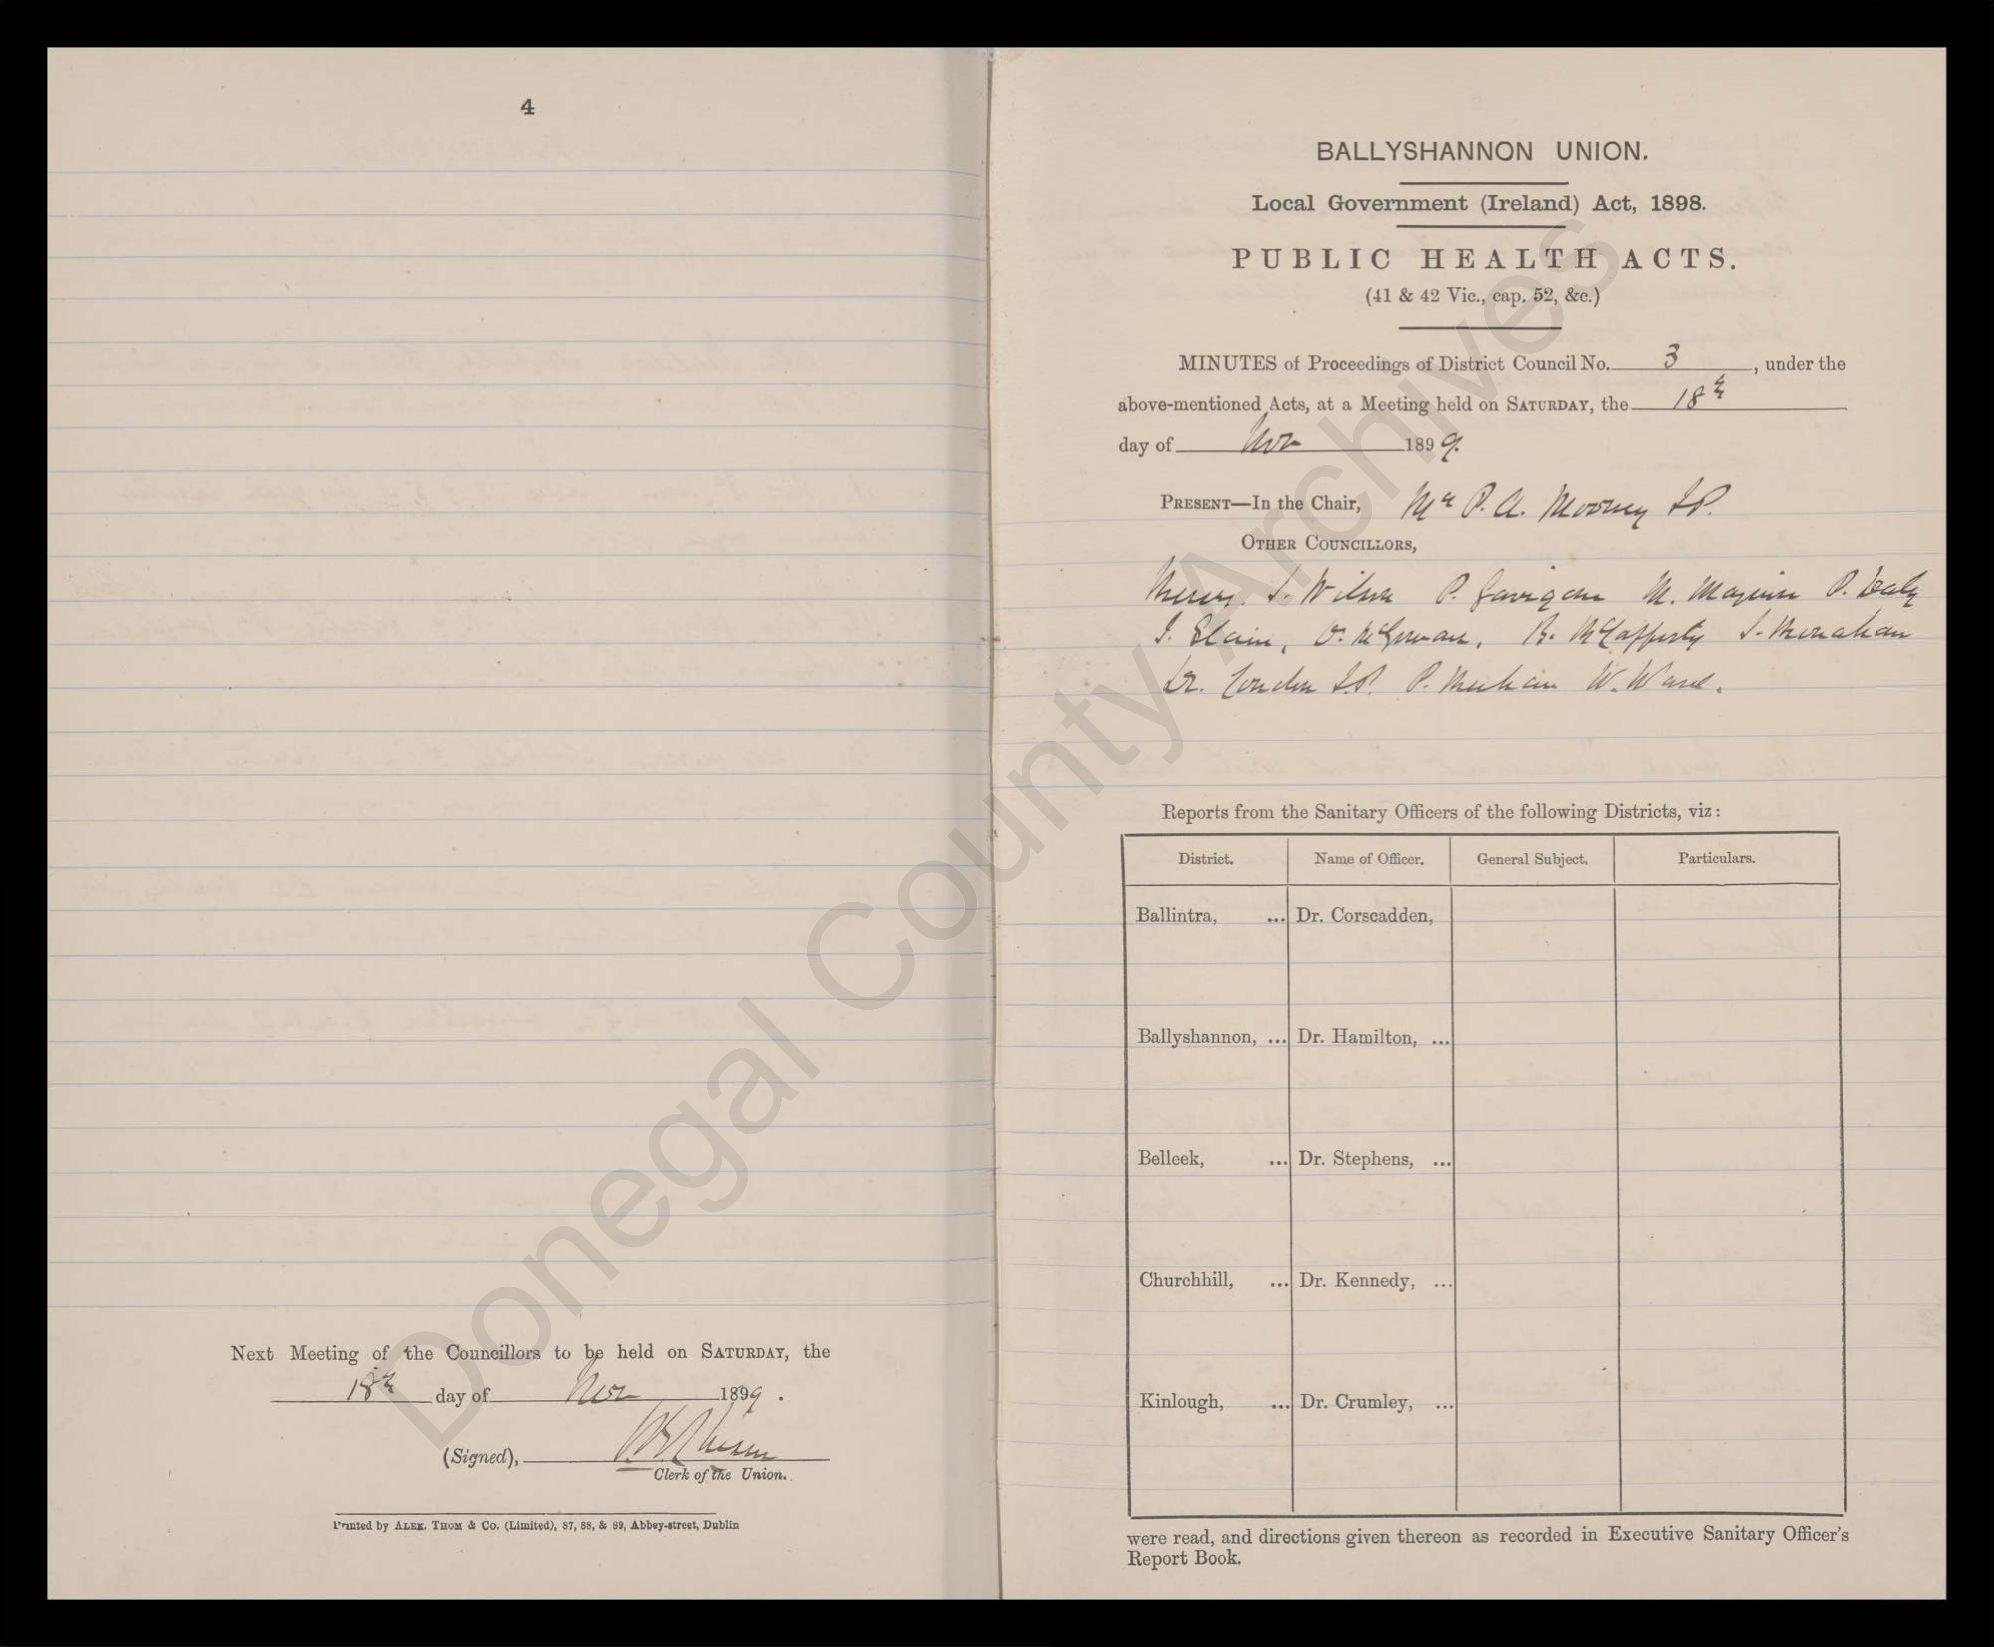 4
Next Meeting of the Councillors to be held on SATURDAY, the
18th day of Nov 1899.
(Signed),
Clerk of the Union.
Printed by ALEX. THOM & Co. (Limited), 87, 88, & 89, Abbey-street, Dublin
BALLYSHANNON UNION.
Local Government (Ireland) Act, 1898.
PUBLIC HEALTH ACTS.
(41 & 42 Vic., cap. 52, &c.)
MINUTES of Proceedings of District Council No. 3, under the
above-mentioned Acts, at a Meeting held on SATURDAY, the 18th
day of Nov 1899.
PRESENT—In the Chair, Mr P. A. Mooney J.P.
OTHER COUNCILLORS,
Messrs. J. Wilson P. Gavigan M. Maguire P. Daly
J. Slevin, O. McGowan, B. McCafferty J. Monahan
Dr. Condon J.P. P. Meehan W. Ward.
Reports from the Sanitary Officers of the following Districts, viz:
District. Name of Officer. General Subject. Particulars.
Ballintra, ... Dr. Corscadden,
Ballyshannon, ... Dr. Hamilton, ...
Belleek, ... Dr. Stephens, ...
Churchhill, ... Dr. Kennedy, ...
Kinlough, ... Dr. Crumley, ...
were read, and directions given thereon as recorded in Executive Sanitary Officer's
Report Book.
Donegal County Archives